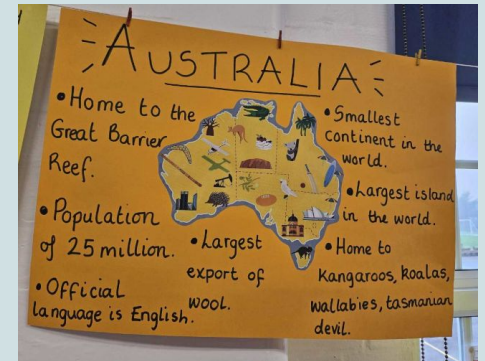 AUSTRALIA
• Home to the
Great Barrier
Reef.
• Population
of 25 million.
• Official
language is English.
• Largest
export of
wool.
• Smallest
continent in the
world.
• Largest island
in the world.
• Home to
Kangaroos, koalas,
wallabies, tasmanian
devil.